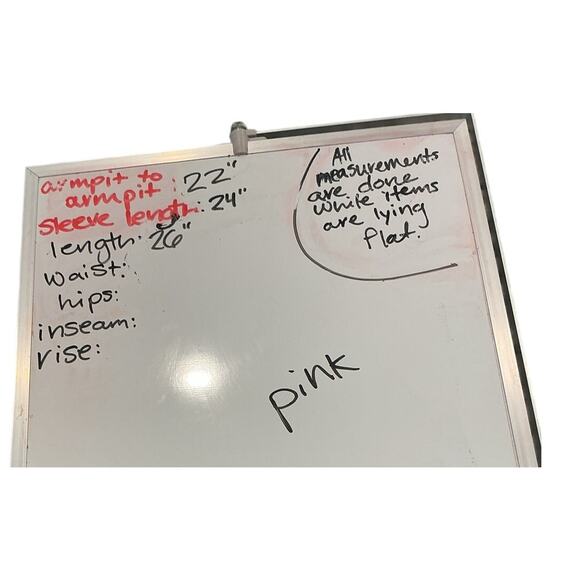 armpit to
armpit: 22"
sleeve length: 24"
length: 26"
waist:
hips:
inseam:
rise:
All
measurements
are done
while items
are lying
flat.
pink